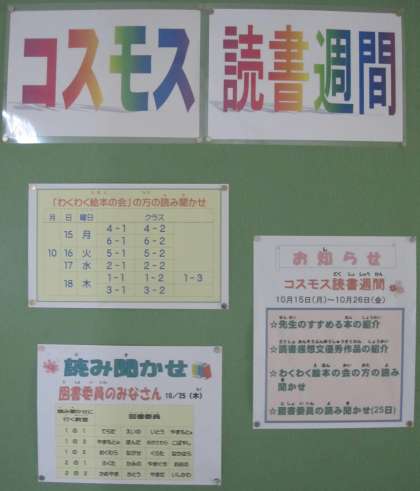 コスモス 読書週間
「わくわく絵本の会」の方の読み聞かせ
月 日 曜日 クラス
10 15 月 4-1 4-2
6-1 6-2
16 火 5-1 5-2
17 水 2-1 2-2
18 木 1-1 1-2 1-3
3-1 3-2
お知らせ
コスモス読書週間
10月15日(月)~10月26日(金)
☆先生のすすめる本の紹介
☆読書感想文優秀作品の紹介
☆わくわく絵本の会の方の読み
聞かせ
☆図書委員の読み聞かせ(25日)
読み聞かせ
図書委員のみなさん 10/25(木)
読み聞かせに
行く教室 図書委員
1の1
1の2
1の3
2の1
2の2